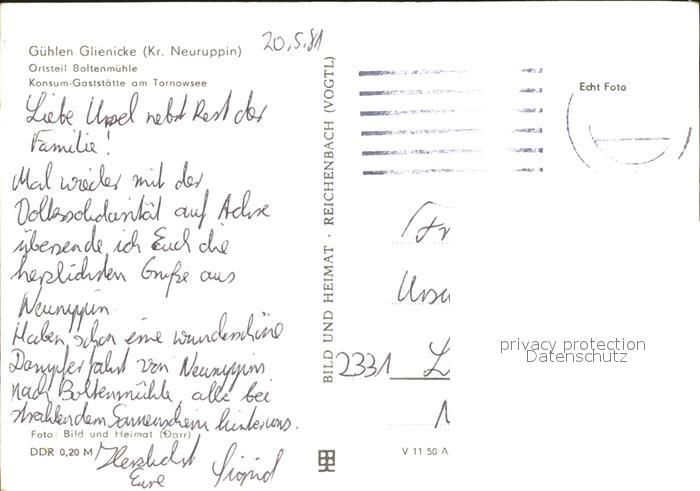 20.5.81
Gühlen Glienicke (Kr. Neuruppin)
Ortsteil Boltenmühle
Konsum-Gaststätte am Tornowsee
Liebe Ursel nebst Rest der
Familie!
Mal wieder mit der
Volkssolidarität auf Achse
übersende ich Euch die
herzlichsten Grüße aus
Neuruppin.
Haben schon eine wunderschöne
Dampferfahrt von Neuruppin
nach Boltenmühle, alle bei
strahlendem Sonnenschein hinter uns.
Foto: Bild und Heimat (Darr)
DDR 0,20 M
Herzlichst
Eure Sigrid
BILD UND HEIMAT · REICHENBACH (VOGTL)
Echt Foto
Fr
Ursu
2331
privacy protection
Datenschutz
V 11 50 A